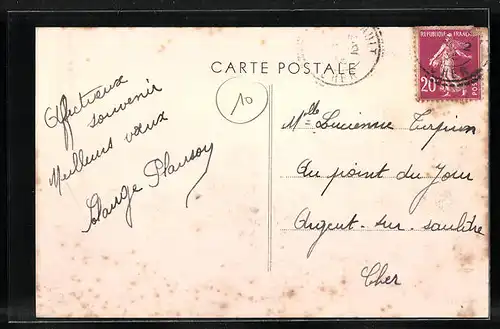 CARTE POSTALE
REPUBLIQUE FRANÇAISE
20
POSTES
10
Affectueux
souvenir
Meilleurs vœux
Mlle Lucienne Turpin
Au point du Jour
Argent-sur-sauldre
Cher